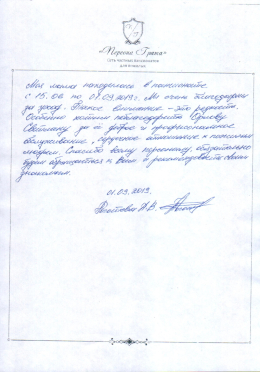 «Первая Грань»
сеть частных пансионатов
для пожилых
Моя мама находилась в пансионате
с 15.08 по 01.09.2019г. Мы очень благодарны
за уход. Такое внимание - это редкость.
Особенно хотим поблагодарить
Светлану за её доброе и профессиональное
обслуживание, чуткое отношение к пожилым
людям. Спасибо всему персоналу. Обязательно
будем обращаться к Вам и рекомендовать своим
знакомым.
01.09.2019.